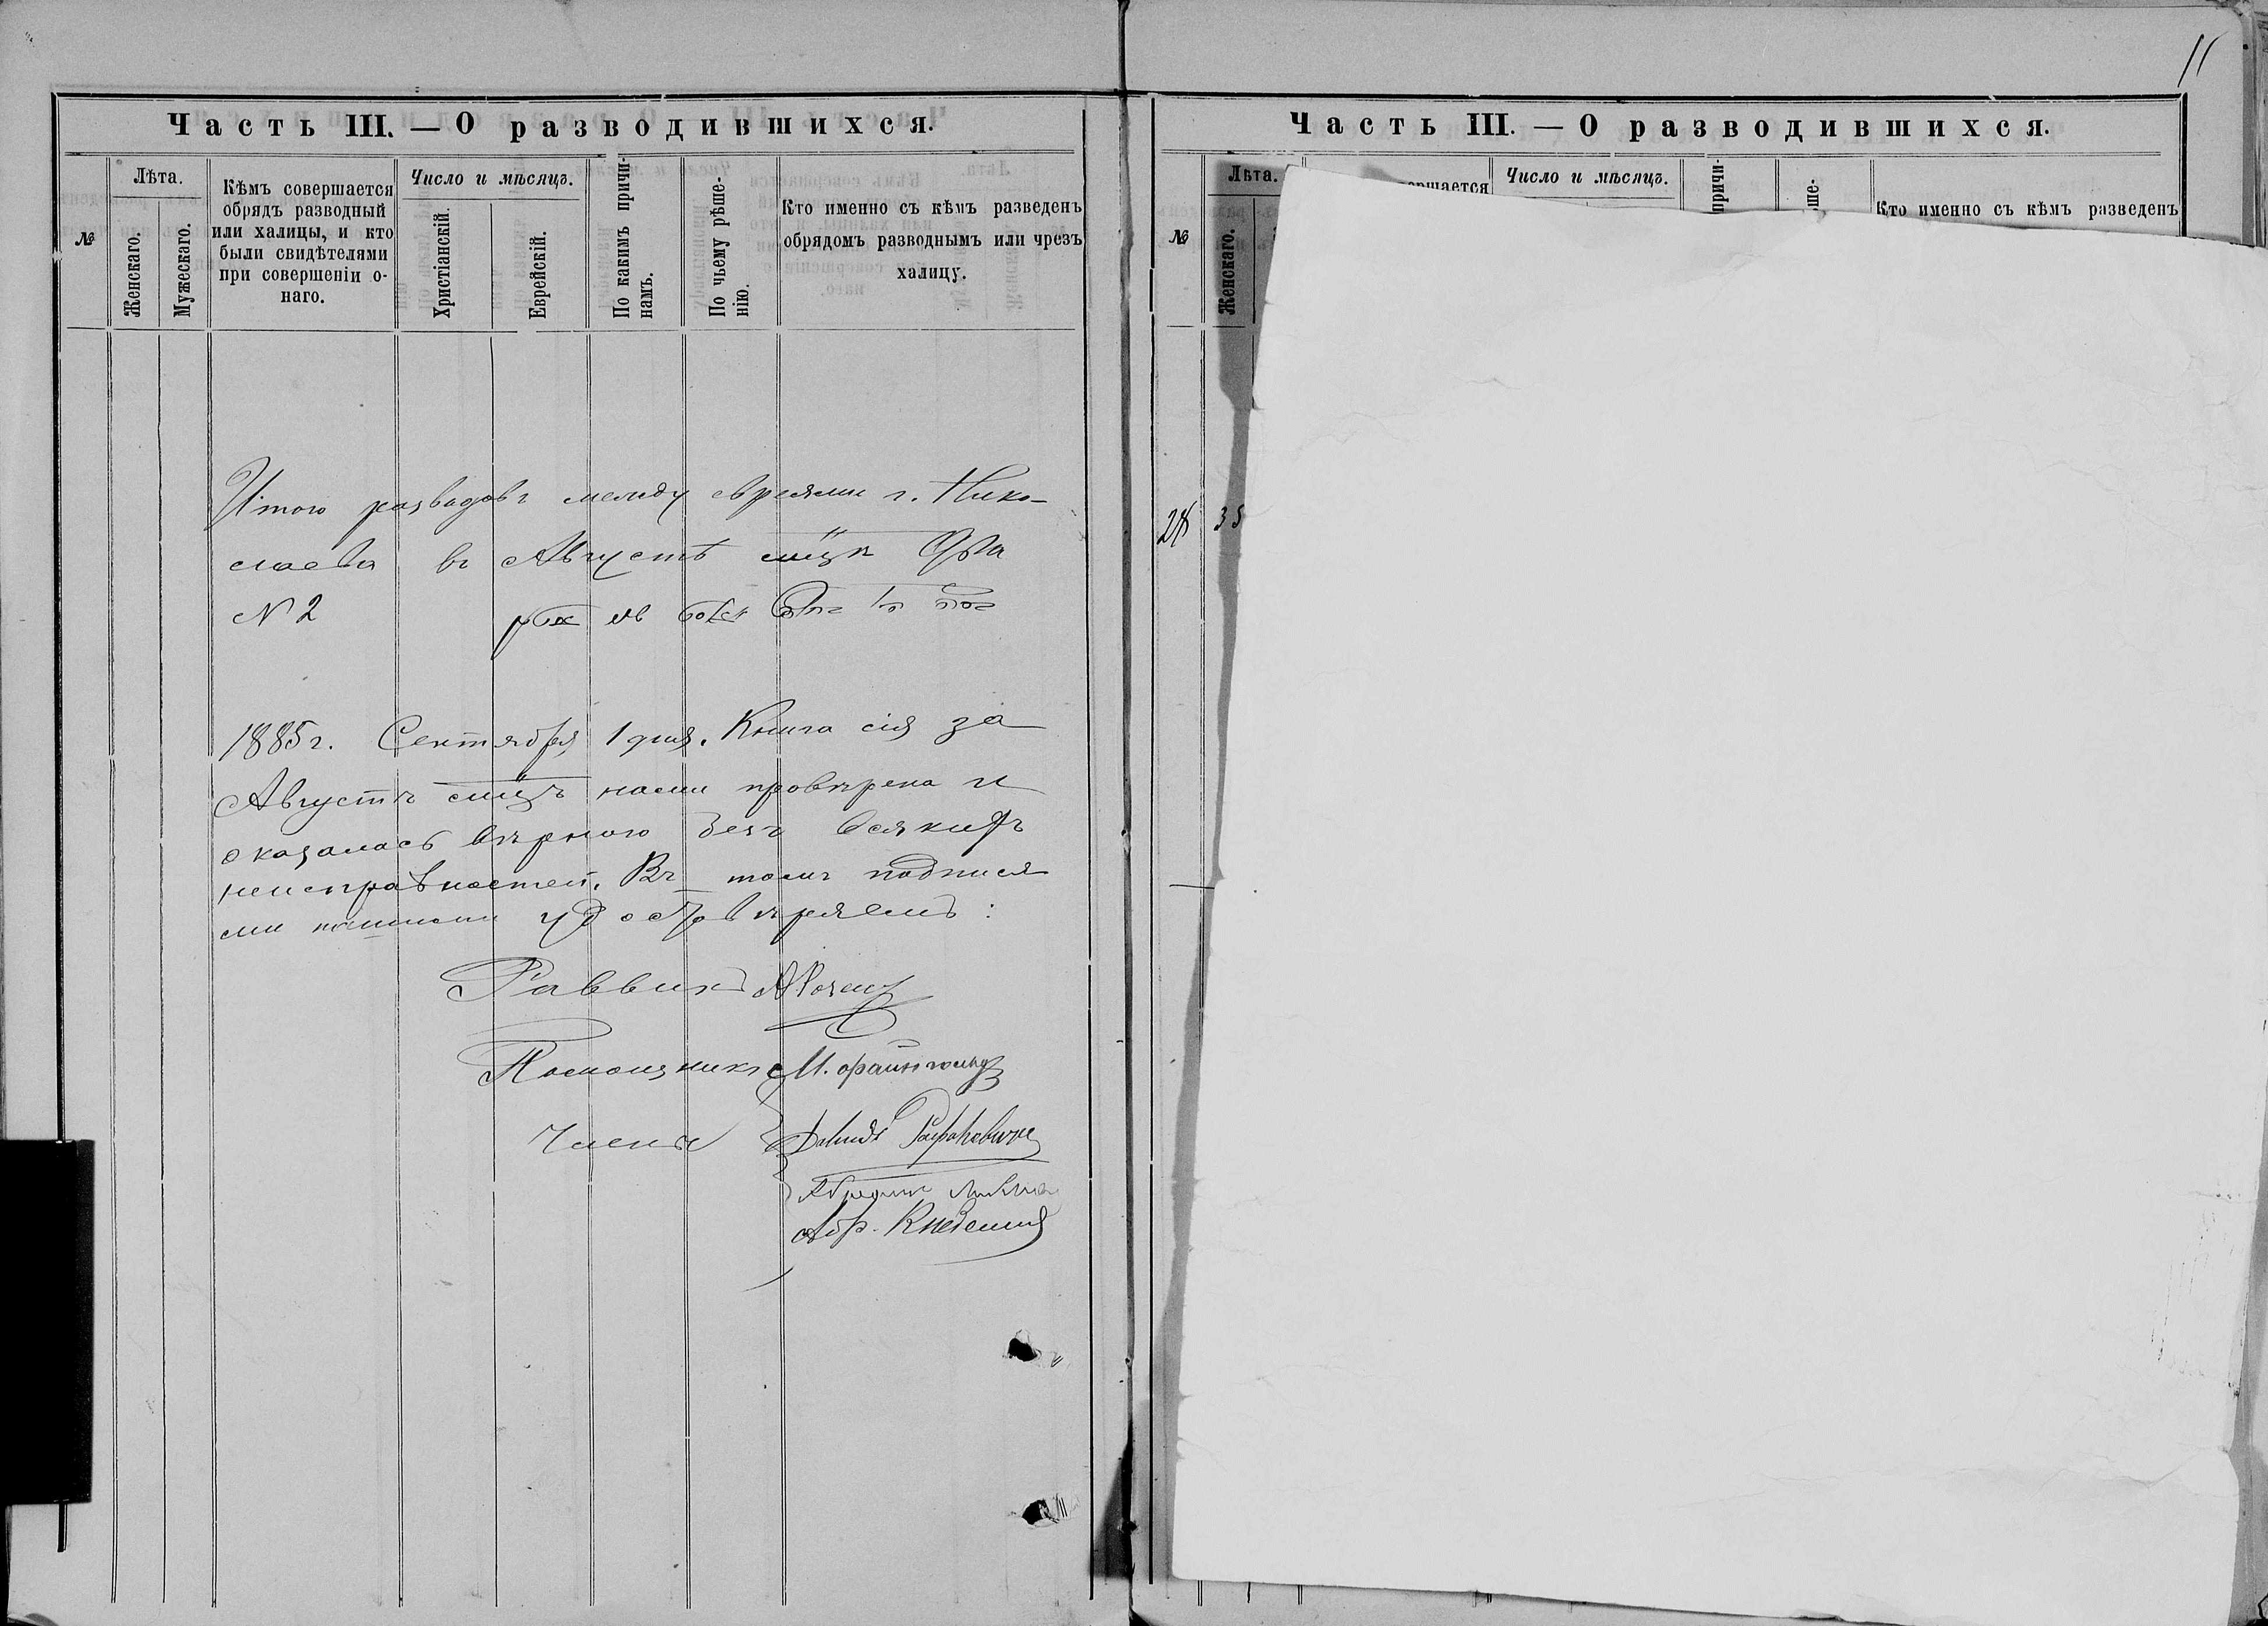 11
Часть III. — О разводившихся.
№
Лѣта.
Женскаго.
Мужескаго.
Кѣмъ совершается
обрядъ разводный
или халицы, и кто
были свидѣтелями
при совершеніи о-
наго.
Число и мѣсяцъ.
Христіанскій.
Еврейскій.
По какимъ причи-
намъ.
По чьему рѣше-
нію.
Кто именно съ кѣмъ разведенъ
обрядомъ разводнымъ или чрезъ
халицу.
Итого разводовъ между евреями г. Нико-
лаева въ Августѣ мцѣ два
№ 2
1885 г. Сентября 1 дня. Книга сія за
Августъ мцъ нами провѣрена и
оказалась вѣрною безъ всякихъ
неисправностей. Въ томъ подпися
ми нашими удостовѣряемъ:
Раввинъ
Помощникъ М. Файнгольд
Члены Давидъ
Абр.
Часть III. — О разводившихся.
№
Лѣта.
Женскаго.
ершается
Число и мѣсяцъ.
причи-
ше-
Кто именно съ кѣмъ разведенъ
28 35